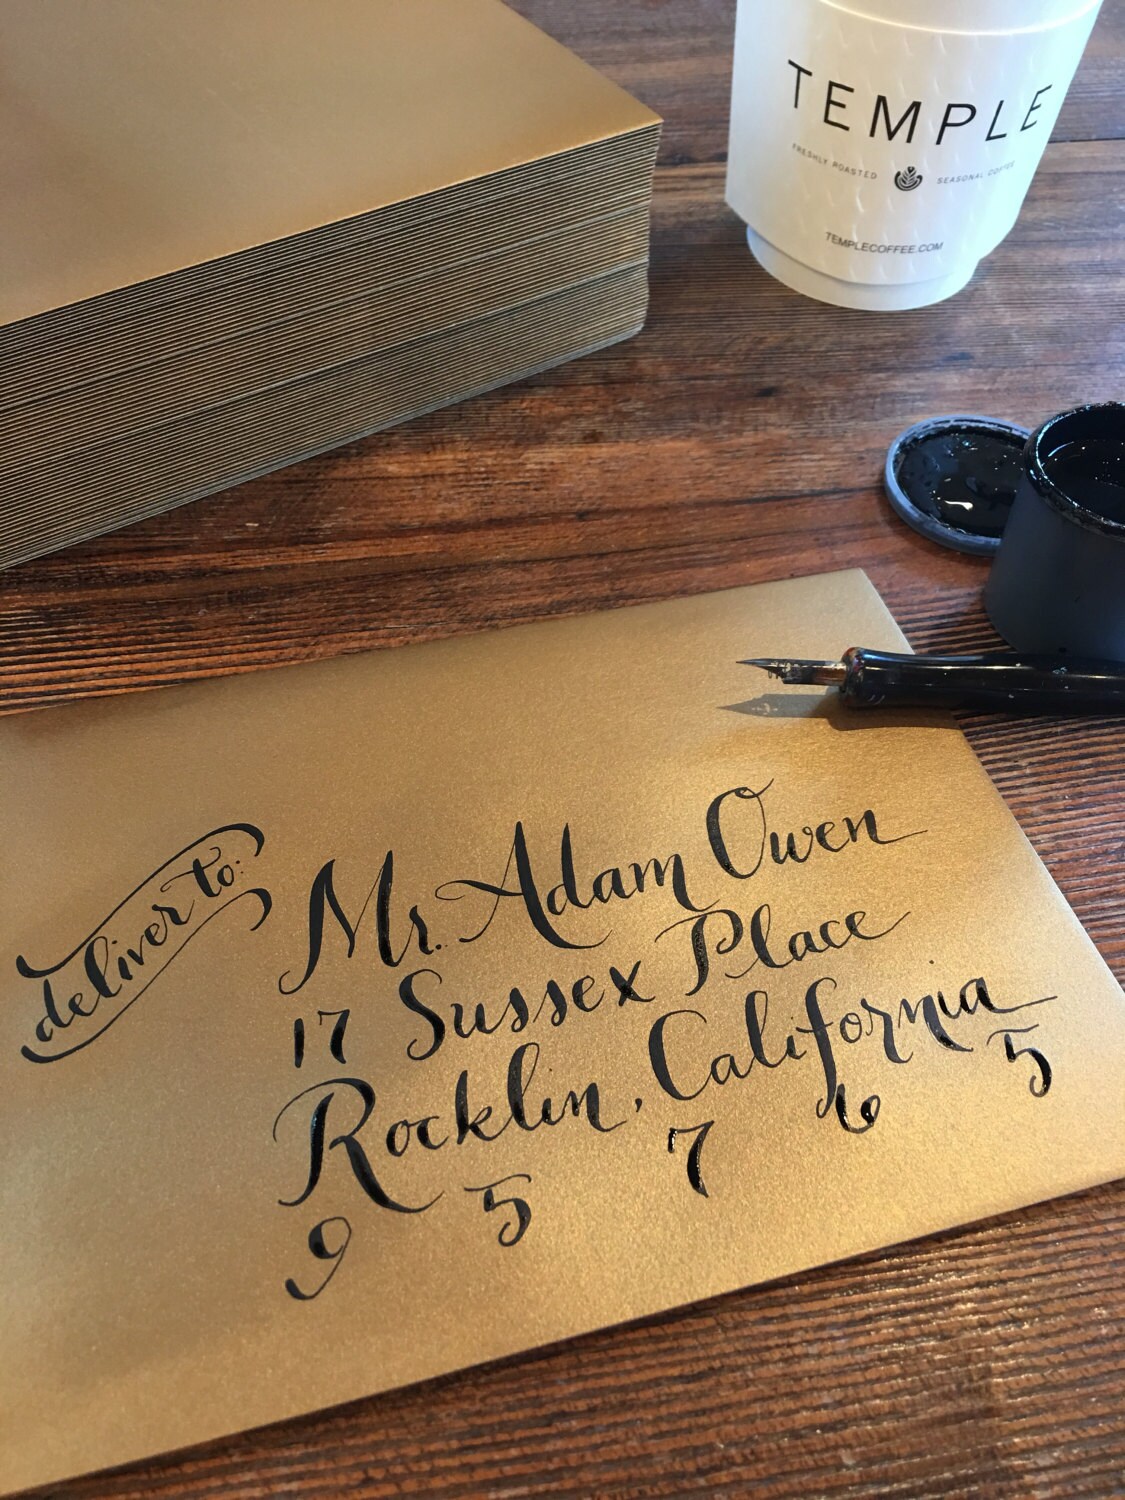 TEMPLE
FRESHLY ROASTED SEASONAL COFFEE
TEMPLECOFFEE.COM
deliver to:
Mr. Adam Owen
17 Sussex Place
Rocklin, California
9 5 7 6 5